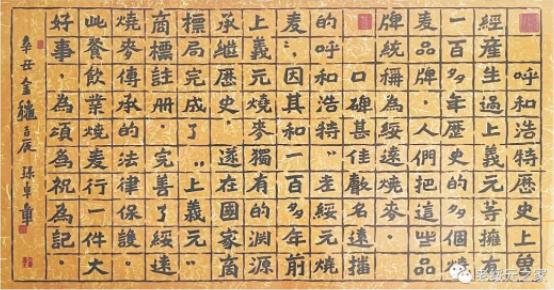 呼和浩特歷史上曾
經產生過上義元等擁有
一百多年歷史的多個燒
麥品牌，人們把這些品
牌統稱為綏遠燒麥。
口碑甚佳聲名遠播
的呼和浩特“老綏元燒
麦”，因其和一百多年前
上義元燒麥獨有的淵源
承继歷史　遂在國家商
標局完成了“上義元”
商標註册，完善了綏遠
燒麥傳承的法律保護。
此餐飲業燒麦行一件大
好事，為頌為祝為記。
辛丑金穐吉辰 孫卓章
老绥元之家